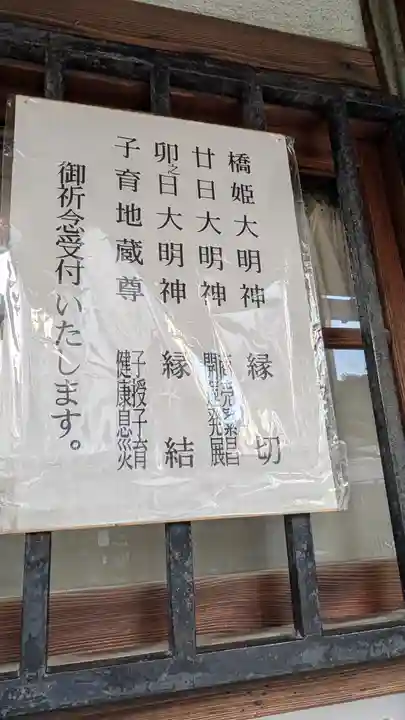 橋姫大明神 縁切
廿日大明神 商売繁昌 開運発展
卯之日大明神 縁結
子育地蔵尊 子授子育 健康息災
御祈念受付いたします。